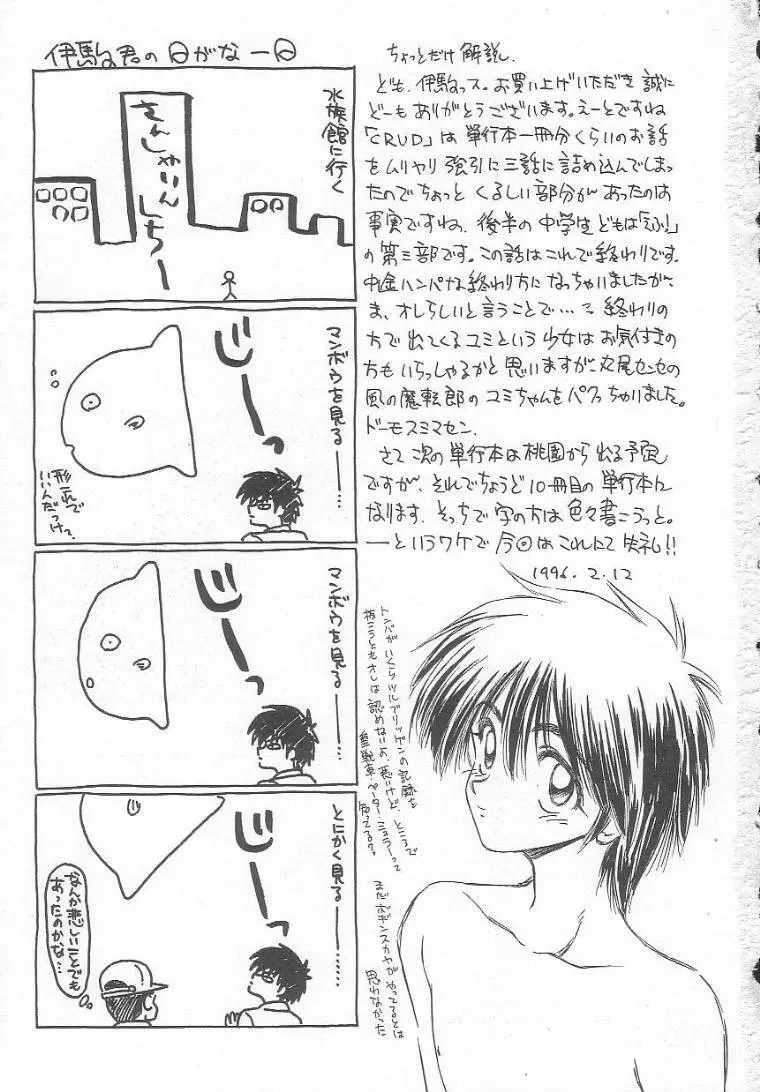 伊駒君の日がな一日
水族館に行く
さんしゃいんしちー
マンボウを見る———…
じーっ
形これで
いいんだっけ?
マンボウを見る———…
じーっ
とにかく見る———……
じーっ
なんか悲しいことでも
あったのかな…
ちょっとだけ解説.
ども、伊駒っス。お買い上げいただき誠に
どーもありがとうございます。えーとですね
「CRUD」は単行本一冊分くらいのお話
をムリヤリ強引に三話に詰め込んでしまっ
たのでちょっとくるしい部分があったのは
事実ですね、後半の中学生どもは「えふ!」
の第三部です。この話はこれで終わりです。
中途ハンパな終わり方になっちゃいましたが、
ま、オレらしいと言うことで…。終わりの
方で出てくるユミという少女はお気付きの
方もいらっしゃるかと思いますが、丸尾センセの
風の魔転郎のユミちゃんをパクっちゃいました。
ドーモスミマセン.
さて次の単行本は桃園から出る予定
ですが、それでちょうど10冊目の単行本に
なります. そっちで字の方は色々書こうっと。
——というワケで今回はこれにて失礼!!
1996.2.12
トンバがいくらツルブリッゲンの記録を
抜こうともオレは認めないよ、悪いけど。ところで
皇戦車ペーター・ミュラーって
知ってる?
まだボギンスカヤがやってるとは
思わなかった